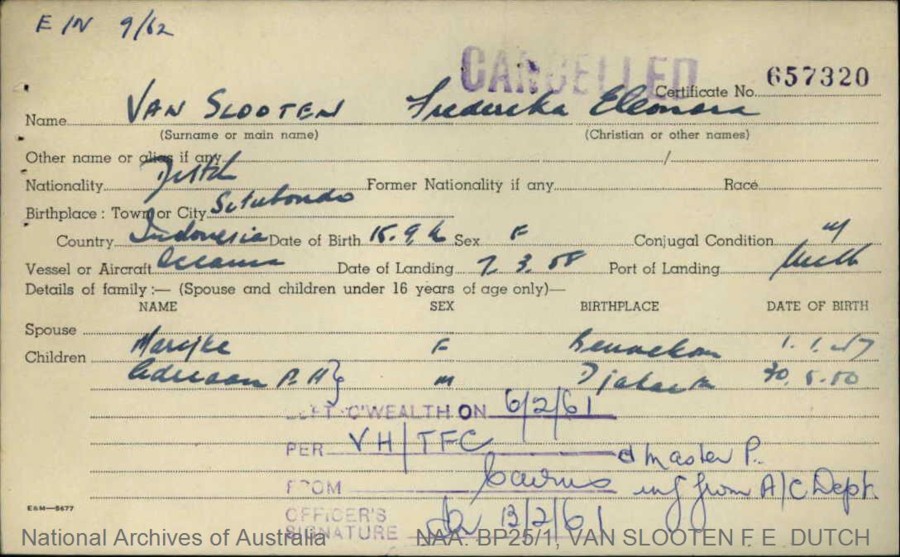 E/N 9/62
CANCELLED
Certificate No. 657320
Name VAN SLOOTEN Frederika Eleonora
(Surname or main name) (Christian or other names)
Other name or alias if any /
Nationality Dutch Former Nationality if any Race
Birthplace: Town or City Situbondo
Country Indonesia Date of Birth Sex F Conjugal Condition M
Vessel or Aircraft Oceania Date of Landing 7. 3. 58 Port of Landing
Details of family:— (Spouse and children under 16 years of age only)—
NAME SEX BIRTHPLACE DATE OF BIRTH
Spouse
Children Marijke F Bennekom 1. 1. 47
Adriaan P. H } M Djakarta 30. 5. 50
LEFT C'WEALTH ON 6/2/61
PER VH/TFC & Master P.
FROM Cairns inf from A/C Dept.
OFFICER'S
SIGNATURE 13/2/61
E&M—5677
National Archives of Australia NAA: BP25/1, VAN SLOOTEN F E DUTCH